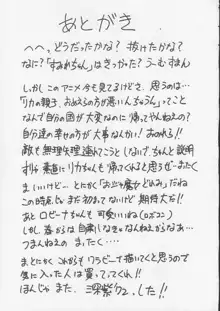 あとがき
へへ。どうだったかな？抜けたかな？
なに？「すみれちゃん」はきつかった？うーむすまん
しかしこのアニメ今も見てるけどさ、思うのは…
「リカの親子、おまえらの方が悪いんちゃうん」ってこと
なんで自分の国が大変なのに帰ってやんねえの？
自分達の幸せの方が大事なんかい！おのれら！！
敵も無理矢理連れてこうとしないで、ちゃんと説明
すりゃ素直にリカちゃんも帰ってくれると思うぜーたく
ましいけど…とにかく「おジャ魔女どれみ」だね
この時点じゃまだ初まってないけど期待大だ!!
あとロビーナちゃんも可愛いね(ロボコン)
しかし春からは自粛しなきゃなんねえからなあ…
つまんねえの まったく‥‥
まとにかくこれからもワラビーで描いてくと思うので
気に入った人は買ってくれ!!
ほんじゃまた、深紫行でした!!